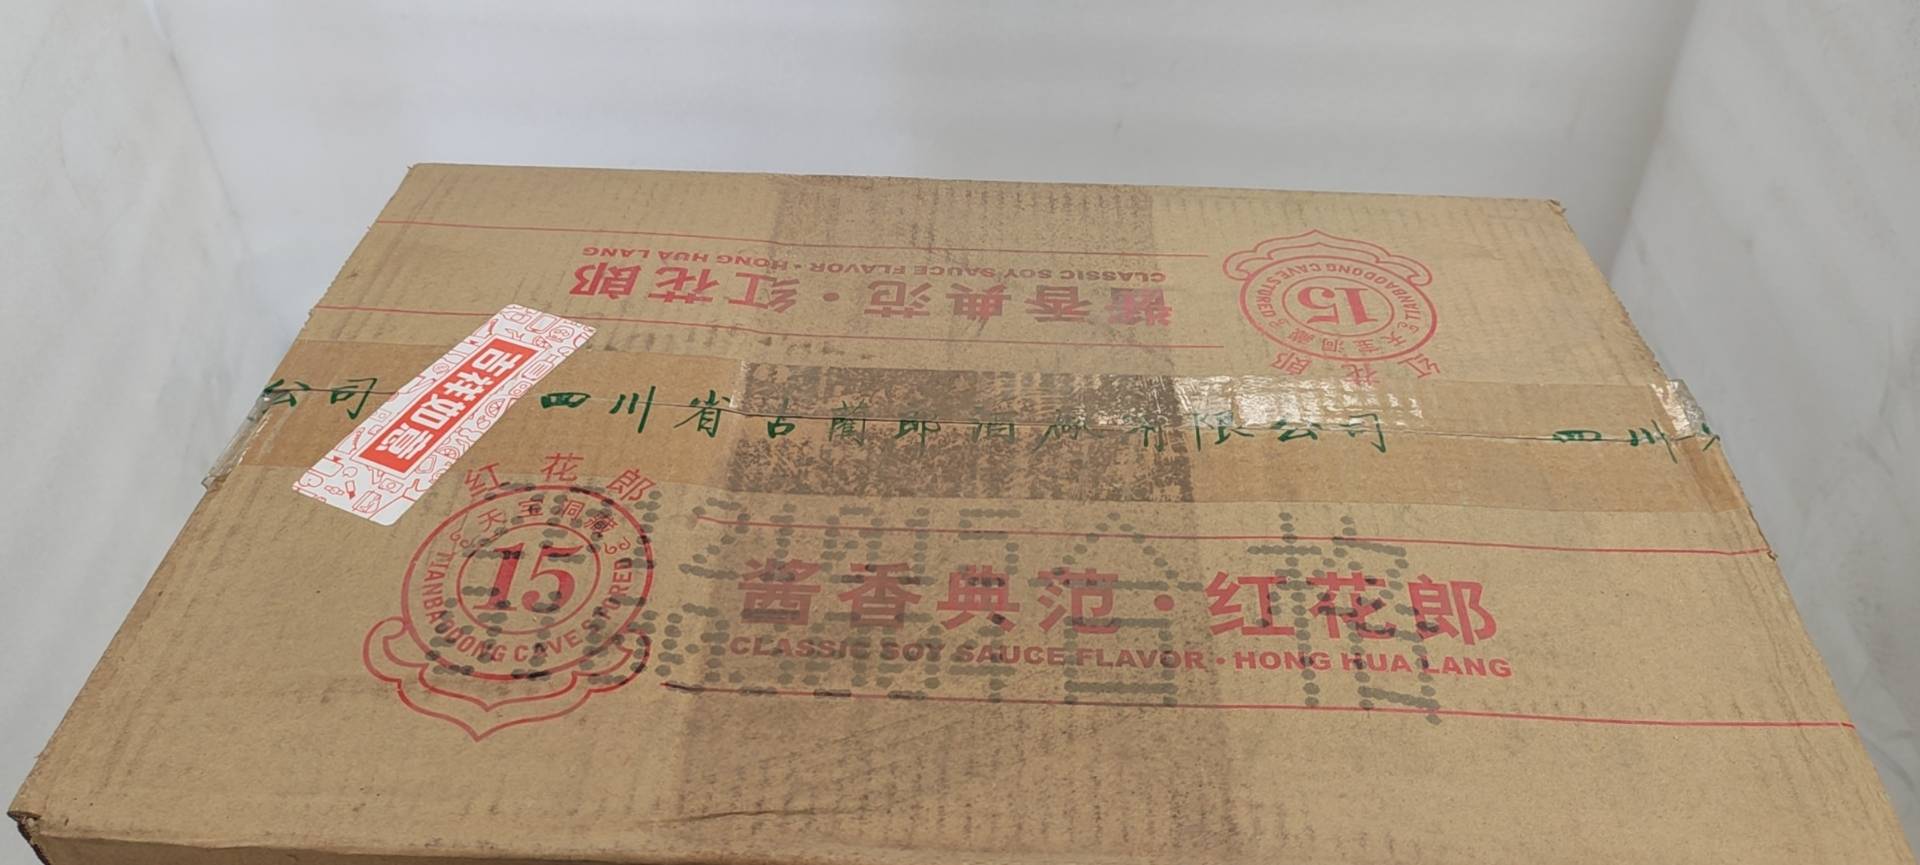 CLASSIC SOY SAUCE FLAVOR · HONG HUA LANG
酱香典范·红花郎
TIANBAODONG CAVE STORED
15
天宝洞藏
红花郎
吉祥如意
公司 四川省古蔺郎酒厂有限公司 四川
红花郎
天宝洞藏
15
TIANBAODONG CAVE STORED
酱香典范·红花郎
CLASSIC SOY SAUCE FLAVOR · HONG HUA LANG